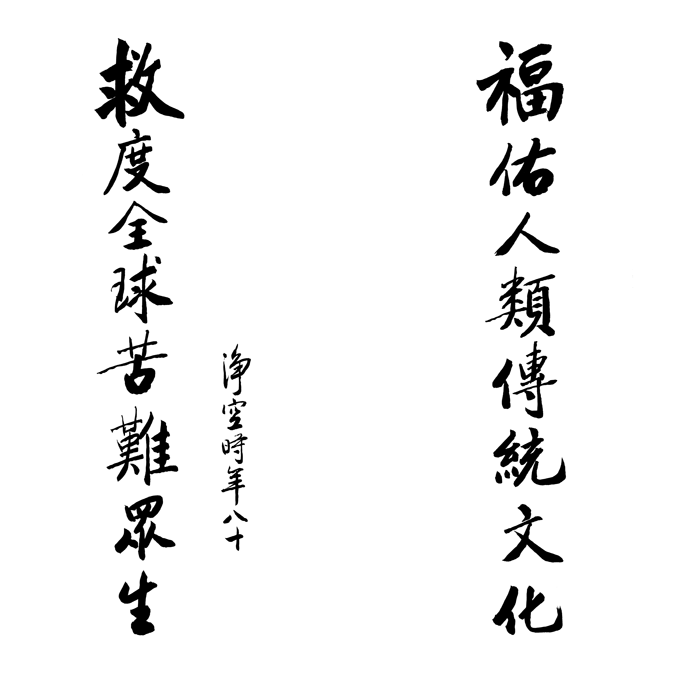 福佑人類傳統文化
淨空時年八十
救度全球苦難眾生